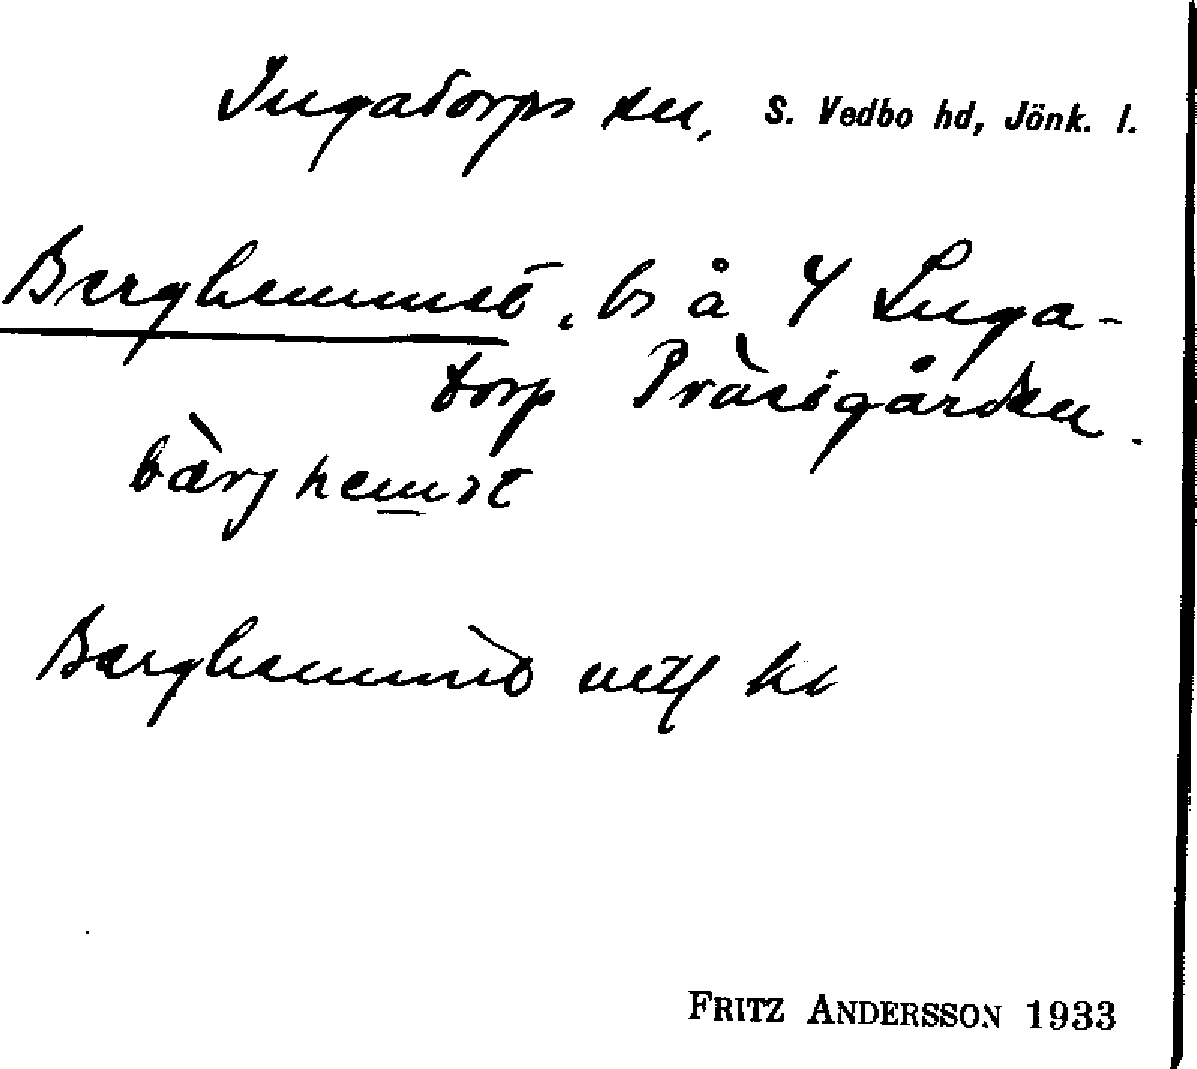 Ingatorps sn, S. Vedbo hd, Jönk. l.
Berghemmet, ls å Y Inga-
torp Prästgården.
bàrj hemət
Berghemmet
FRITZ ANDERSSON 1933